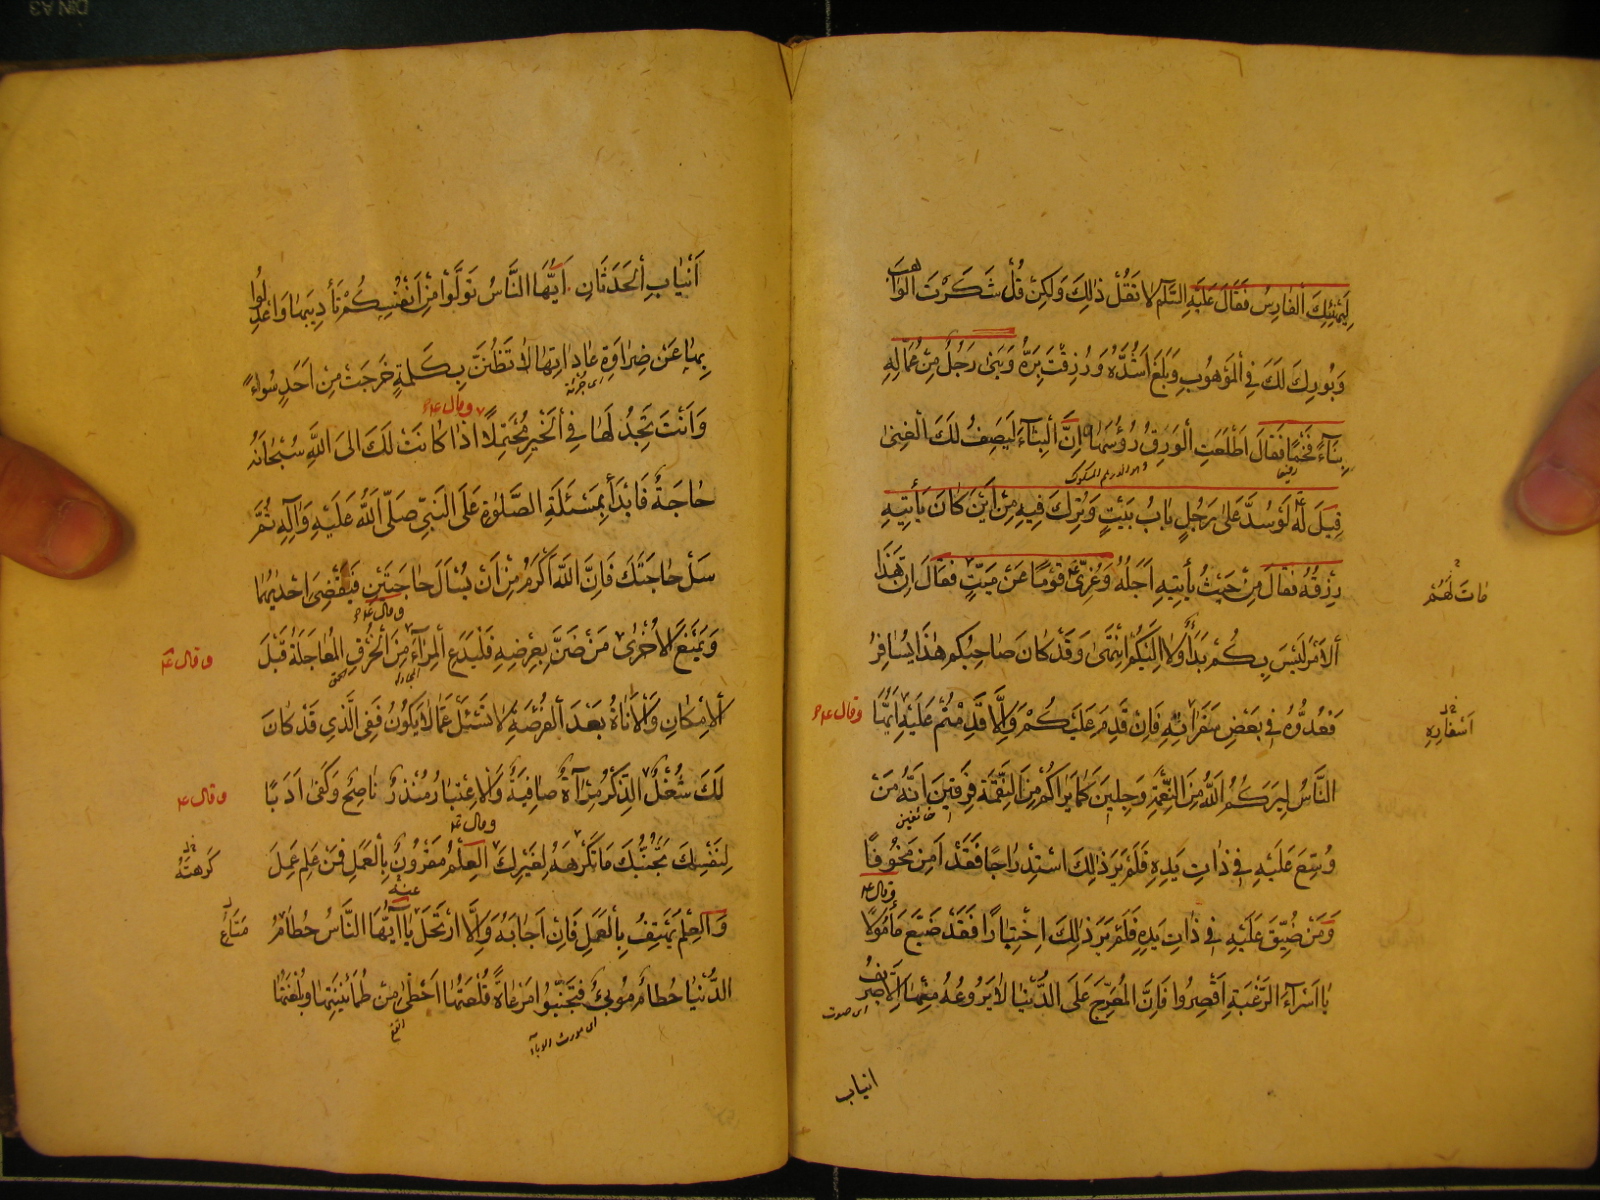 لِيَهْنِئْكَ الْفَارِسُ فَقَالَ عَلَيْهِ السَّلَم لَا تَقُلْ ذٰلِكَ وَلٰكِنْ قُلْ شَكَرْتَ الْوَاهِبَ
وَبُورِكَ لَكَ فِي الْمَوْهُوبِ وَبَلَغَ اَشُدَّهُ وَرُزِقْتَ بِرَّهُ وَبَنٰى رَجُلٌ مِنْ عُمَّالِهِ
بِنَاءً فَخْمًا فَقَالَ اَطْلَعَتِ الْوَرِقُ رُؤُسَهَا اِنَّ الْبِنَاءَ لَيَصِفُ لَكَ الْغِنٰى
قِيلَ لَهُ لَوْ سُدَّ عَلٰى رَجُلٍ بَابُ بَيْتٍ وَتُرِكَ فِيهِ مِنْ اَيْنَ كَانَ يَأْتِيهِ
رِزْقُهُ فَقَالَ مِنْ حَيْثُ يَأْتِيهِ اَجَلُهُ وَعَزّٰى قَوْمًا عَنْ مَيِّتٍ فَقَالَ اِنَّ هَذَا
مَاتَ لَهُمْ
الْاَمْرَ لَيْسَ بِكُمْ بَدَأَ وَلَا اِلَيْكُمُ انْتَهٰى وَقَدْ كَانَ صَاحِبُكُمْ هٰذَا يُسَافِرُ
فَعُدُّوهُ فِي بَعْضِ سَفَرَاتِهِ فَاِنْ قَدِمَ عَلَيْكُمْ وَاِلَّا قَدِمْتُمْ عَلَيْهِ اَيُّهَا
اَسْفَارِهِ
وقال ع
النَّاسُ لِيَرَكُمُ اللّٰهُ مِنَ النِّعْمَةِ وَجِلِينَ كَمَا يَرَاكُمْ مِنَ النِّقْمَةِ فَرِقِينَ اِنَّهُ مَنْ
خائفين
وُسِّعَ عَلَيْهِ فِي ذَاتِ يَدِهِ فَلَمْ يَرَ ذٰلِكَ اسْتِدْرَاجًا فَقَدْ اَمِنَ مَخُوفًا
وقال ع
وَمَنْ ضُيِّقَ عَلَيْهِ فِي ذَاتِ يَدِهِ فَلَمْ يَرَ ذٰلِكَ اخْتِبَارًا فَقَدْ ضَيَّعَ مَأْمُولًا
يَا اَسْرَاءَ الرَّغْبَةِ اَقْصِرُوا فَاِنَّ الْمُعَرِّجَ عَلَى الدُّنْيَا لَا يَرُوعُهُ مِنْهَا اِلَّا صَرِيفُ
اى صوت
انياب
اَنْيَابِ الْحَدَثَانِ اَيُّهَا النَّاسُ تَوَلَّوْا مِنْ اَنْفُسِكُمْ تَأْدِيبَهَا وَاعْدِلُوا
بِهَا عَنْ ضِرَاوَةِ عَادَاتِهَا لَا تَظُنَّنَّ بِكَلِمَةٍ خَرَجَتْ مِنْ اَحَدٍ سُوءً
وقال ع
وَاَنْتَ تَجِدُ لَهَا فِي الْخَيْرِ مُحْتَمِلًا اِذَا كَانَتْ لَكَ اِلَى اللّٰهِ سُبْحَانَهُ
حَاجَةٌ فَابْدَأْ بِمَسْئَلَةِ الصَّلٰوةِ عَلَى النَّبِيِّ صَلَّى اللّٰهُ عَلَيْهِ وَآلِهِ ثُمَّ
سَلْ حَاجَتَكَ فَاِنَّ اللّٰهَ اَكْرَمُ مِنْ اَنْ يُسْاَلَ حَاجَتَيْنِ فَيَقْضِيَ اِحْدٰيهُمَا
وقال ع
وَيَمْنَعَ الْاُخْرٰى مَنْ ضَنَّ بِعِرْضِهِ فَلْيَدَعِ الْمِرَاءَ مِنَ الْخُرْقِ الْمُعَاجَلَةُ قَبْلَ
وقال ع
الْاِمْكَانِ وَالْاَنَاةُ بَعْدَ الْفُرْصَةِ لَا تَسْئَلْ عَمَّا لَا يَكُونُ فَفِي الَّذِي قَدْ كَانَ
لَكَ شُغْلٌ الْفِكْرُ مِرْآةٌ صَافِيَةٌ وَالْاِعْتِبَارُ مُنْذِرٌ نَاصِحٌ وَكَفٰى اَدَبًا
وقال ع
وقال ع
لِنَفْسِكَ تَجَنُّبُكَ مَا تَكْرَهُهُ لِغَيْرِكَ الْعِلْمُ مَقْرُونٌ بِالْعَمَلِ فَمَنْ عَلِمَ عَمِلَ
كَرِهْتَهُ
عَنْهُ
وَالْعِلْمُ يَهْتِفُ بِالْعَمَلِ فَاِنْ اَجَابَهُ وَاِلَّا ارْتَحَلَ يَا اَيُّهَا النَّاسُ حُطَامُ
مَتَاعُ
الدُّنْيَا حُطَامٌ مُوبِئٌ فَتَجَنَّبُوا مَرْعَاةً قُلْعَتُهَا اَحْظٰى مِنْ طُمَأْنِينَتِهَا وَبُلْغَتُهَا